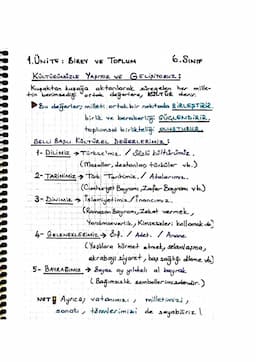 1. ÜNİTE : BİREY VE TOPLUM 6. SINIF
KÜLTÜRÜMÜZLE YAŞIYOR VE GELİŞİYORUZ :
Kuşaktan kuşağa aktarılarak süregelen her mille-
tin benimsediği ortak değerlere, KÜLTÜR denir.
Bu değerler; milleti ortak bir noktada BİRLEŞTİRİR
birlik ve beraberliği GÜÇLENDİRİR.
toplumsal birlikteliği OLUŞTURUR.
BELLİ BAŞLI KÜLTÜREL DEĞERLERİMİZ :
1- DİLİMİZ → Türkçe'miz. / Sözlü kültürümüz.
(Masallar, destanlar, türküler vb.)
2- TARİHİMİZ → Türk Tarihimiz. / Atalarımız.
(Cumhuriyet Bayramı, Zafer Bayramı vb.)
3- DİNİMİZ → İslamiyetimiz / İnancımız.
(Ramazan Bayramı, Zekat vermek,
Yardımseverlik, Kimsesizleri kollamak vb)
4- GELENEKLERİMİZ → Örf. / Adet. / Anane
(Yaşlılara hürmet etmek, selamlaşma,
akrabayı ziyaret, baş sağlığı dileme vb)
5- BAYRAĞIMIZ → Beyaz ay yıldızlı al bayrak
(Bağımsızlık sembollerimizdendir.)
NOT Ayrıca; vatanımız, milletimiz,
sanatı, törenlerimizi de sayabiliriz!